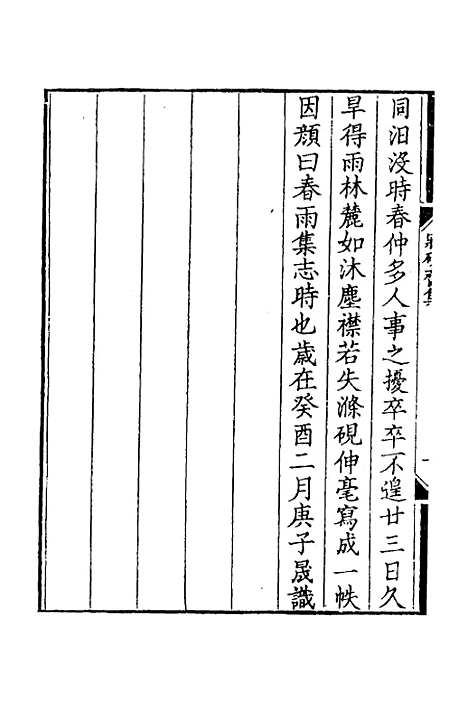 同汨沒時春仲多人事之擾卒卒不遑廿三日久
旱得雨林麓如沐塵襟若失滌硯伸毫寫成一帙
因顏曰春雨集志時也歲在癸酉二月庚子晟識